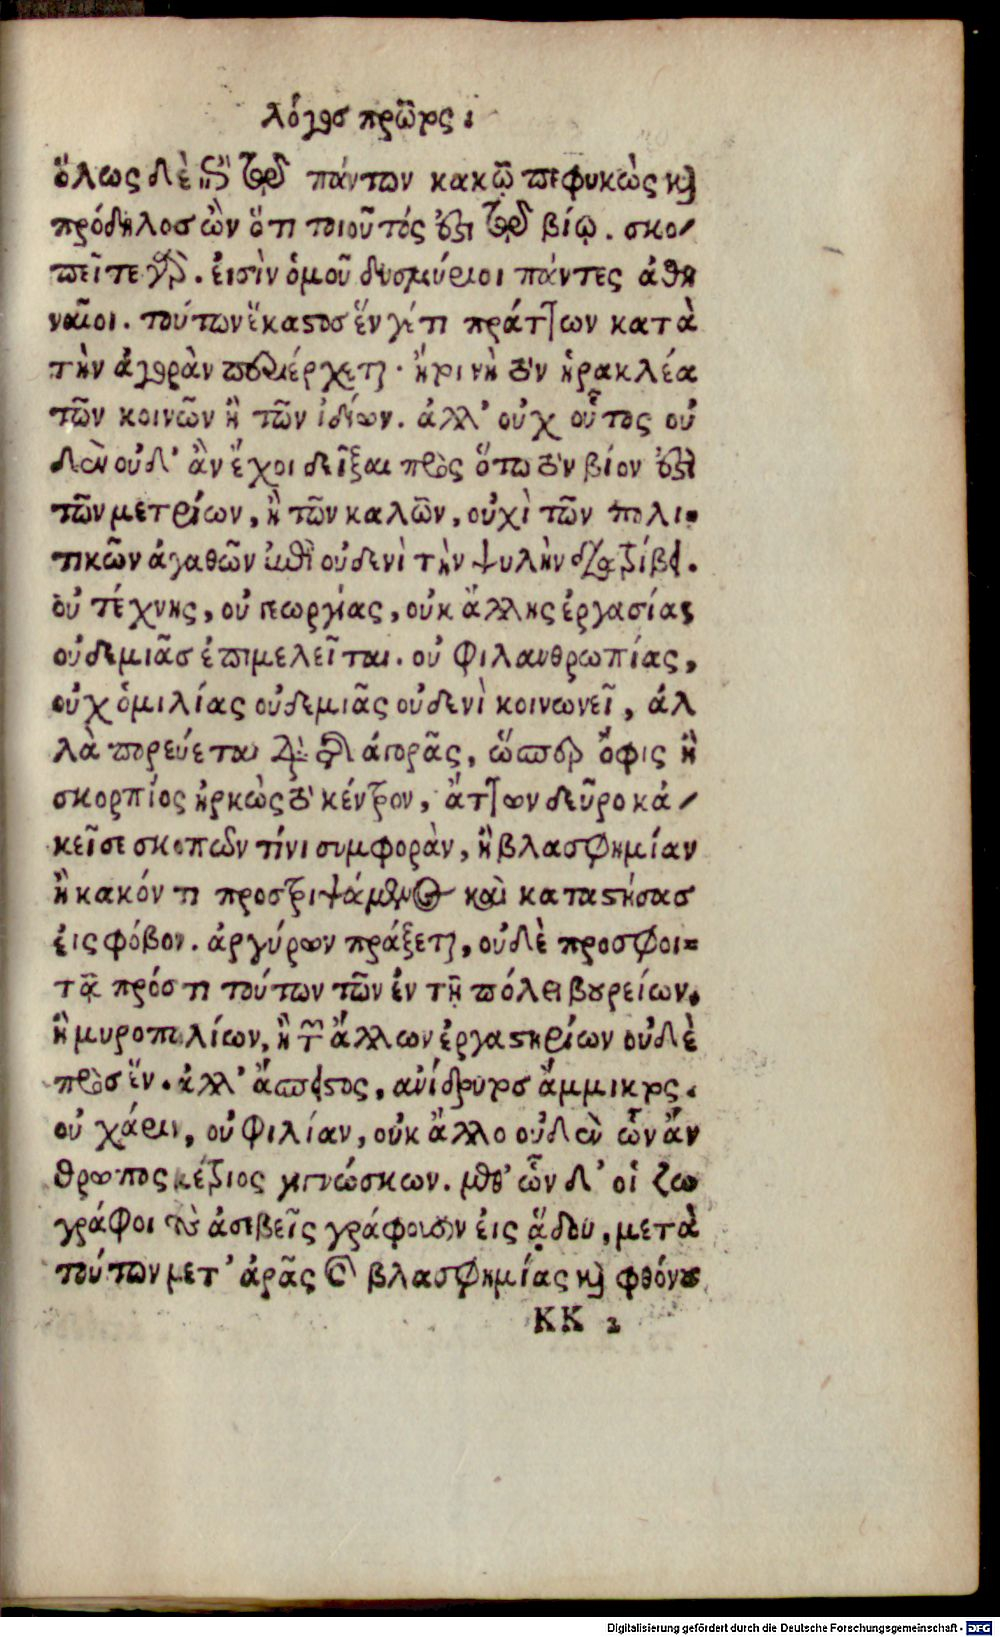 λόγος πρῶτος.
ὅλως δὲ πάντων κακῶς πεφυκὼς καὶ
πρόδηλος ὢν ὅτι τοιοῦτός ἐστι τῷ βίῳ. σκο-
πεῖτε γάρ. εἰσὶν ὁμοῦ δισμύριοι πάντες ἀθη
ναῖοι. τούτων ἕκαστος ἕν γέ τι πράττων κατὰ
τὴν ἀγορὰν περιέρχεται. ἤτοι νὴ τὸν ἡρακλέα
τῶν κοινῶν ἢ τῶν ἰδίων. ἀλλ' οὐχ οὗτος οὐ
δὲν οὐδ' ἂν ἔχοι δεῖξαι πρὸς ὅτῳ τὸν βίον ἐστὶ
τῶν μετρίων, ἢ τῶν καλῶν, οὐχὶ τῶν πολι-
τικῶν ἀγαθῶν ἐπ' οὐδενὶ τὴν ψυχὴν διατρίβει.
οὐ τέχνης, οὐ γεωργίας, οὐκ ἄλλης ἐργασίας
οὐδεμιᾶς ἐπιμελεῖται. οὐ φιλανθρωπίας,
οὐχ ὁμιλίας οὐδεμιᾶς οὐδενὶ κοινωνεῖ, ἀλ
λὰ πορεύεται διὰ τῆς ἀγορᾶς, ὥσπερ ὄφις ἢ
σκορπίος ἠρκὼς τὸ κέντρον, ἄττων δεῦρο κἀ-
κεῖσε σκοπῶν τίνι συμφορὰν, ἢ βλασφημίαν
ἢ κακόν τι προστριψάμενος καὶ καταστήσας
εἰς φόβον. ἀργύριον πράξεται, οὐδὲ προσφοι-
τᾷ πρός τι τούτων τῶν ἐν τῇ πόλει κουρείων,
ἢ μυροπωλίων, ἢ τῶν ἄλλων ἐργαστηρίων οὐδὲ
πρὸς ἕν. ἀλλ' ἄσπειστος, ἀνίδρυτος ἄμμικτος.
οὐ χάριν, οὐ φιλίαν, οὐκ ἄλλο οὐδὲν ὧν ἄν
θρωπος μέτριος γιγνώσκων. μεθ' ὧν δ' οἱ ζω
γράφοι τοὺς ἀσεβεῖς γράφουσιν εἰς ᾅδου, μετὰ
τούτων μετ' ἀρᾶς καὶ βλασφημίας καὶ φθόνου
KK 2
Digitalisierung gefördert durch die Deutsche Forschungsgemeinschaft - DFG